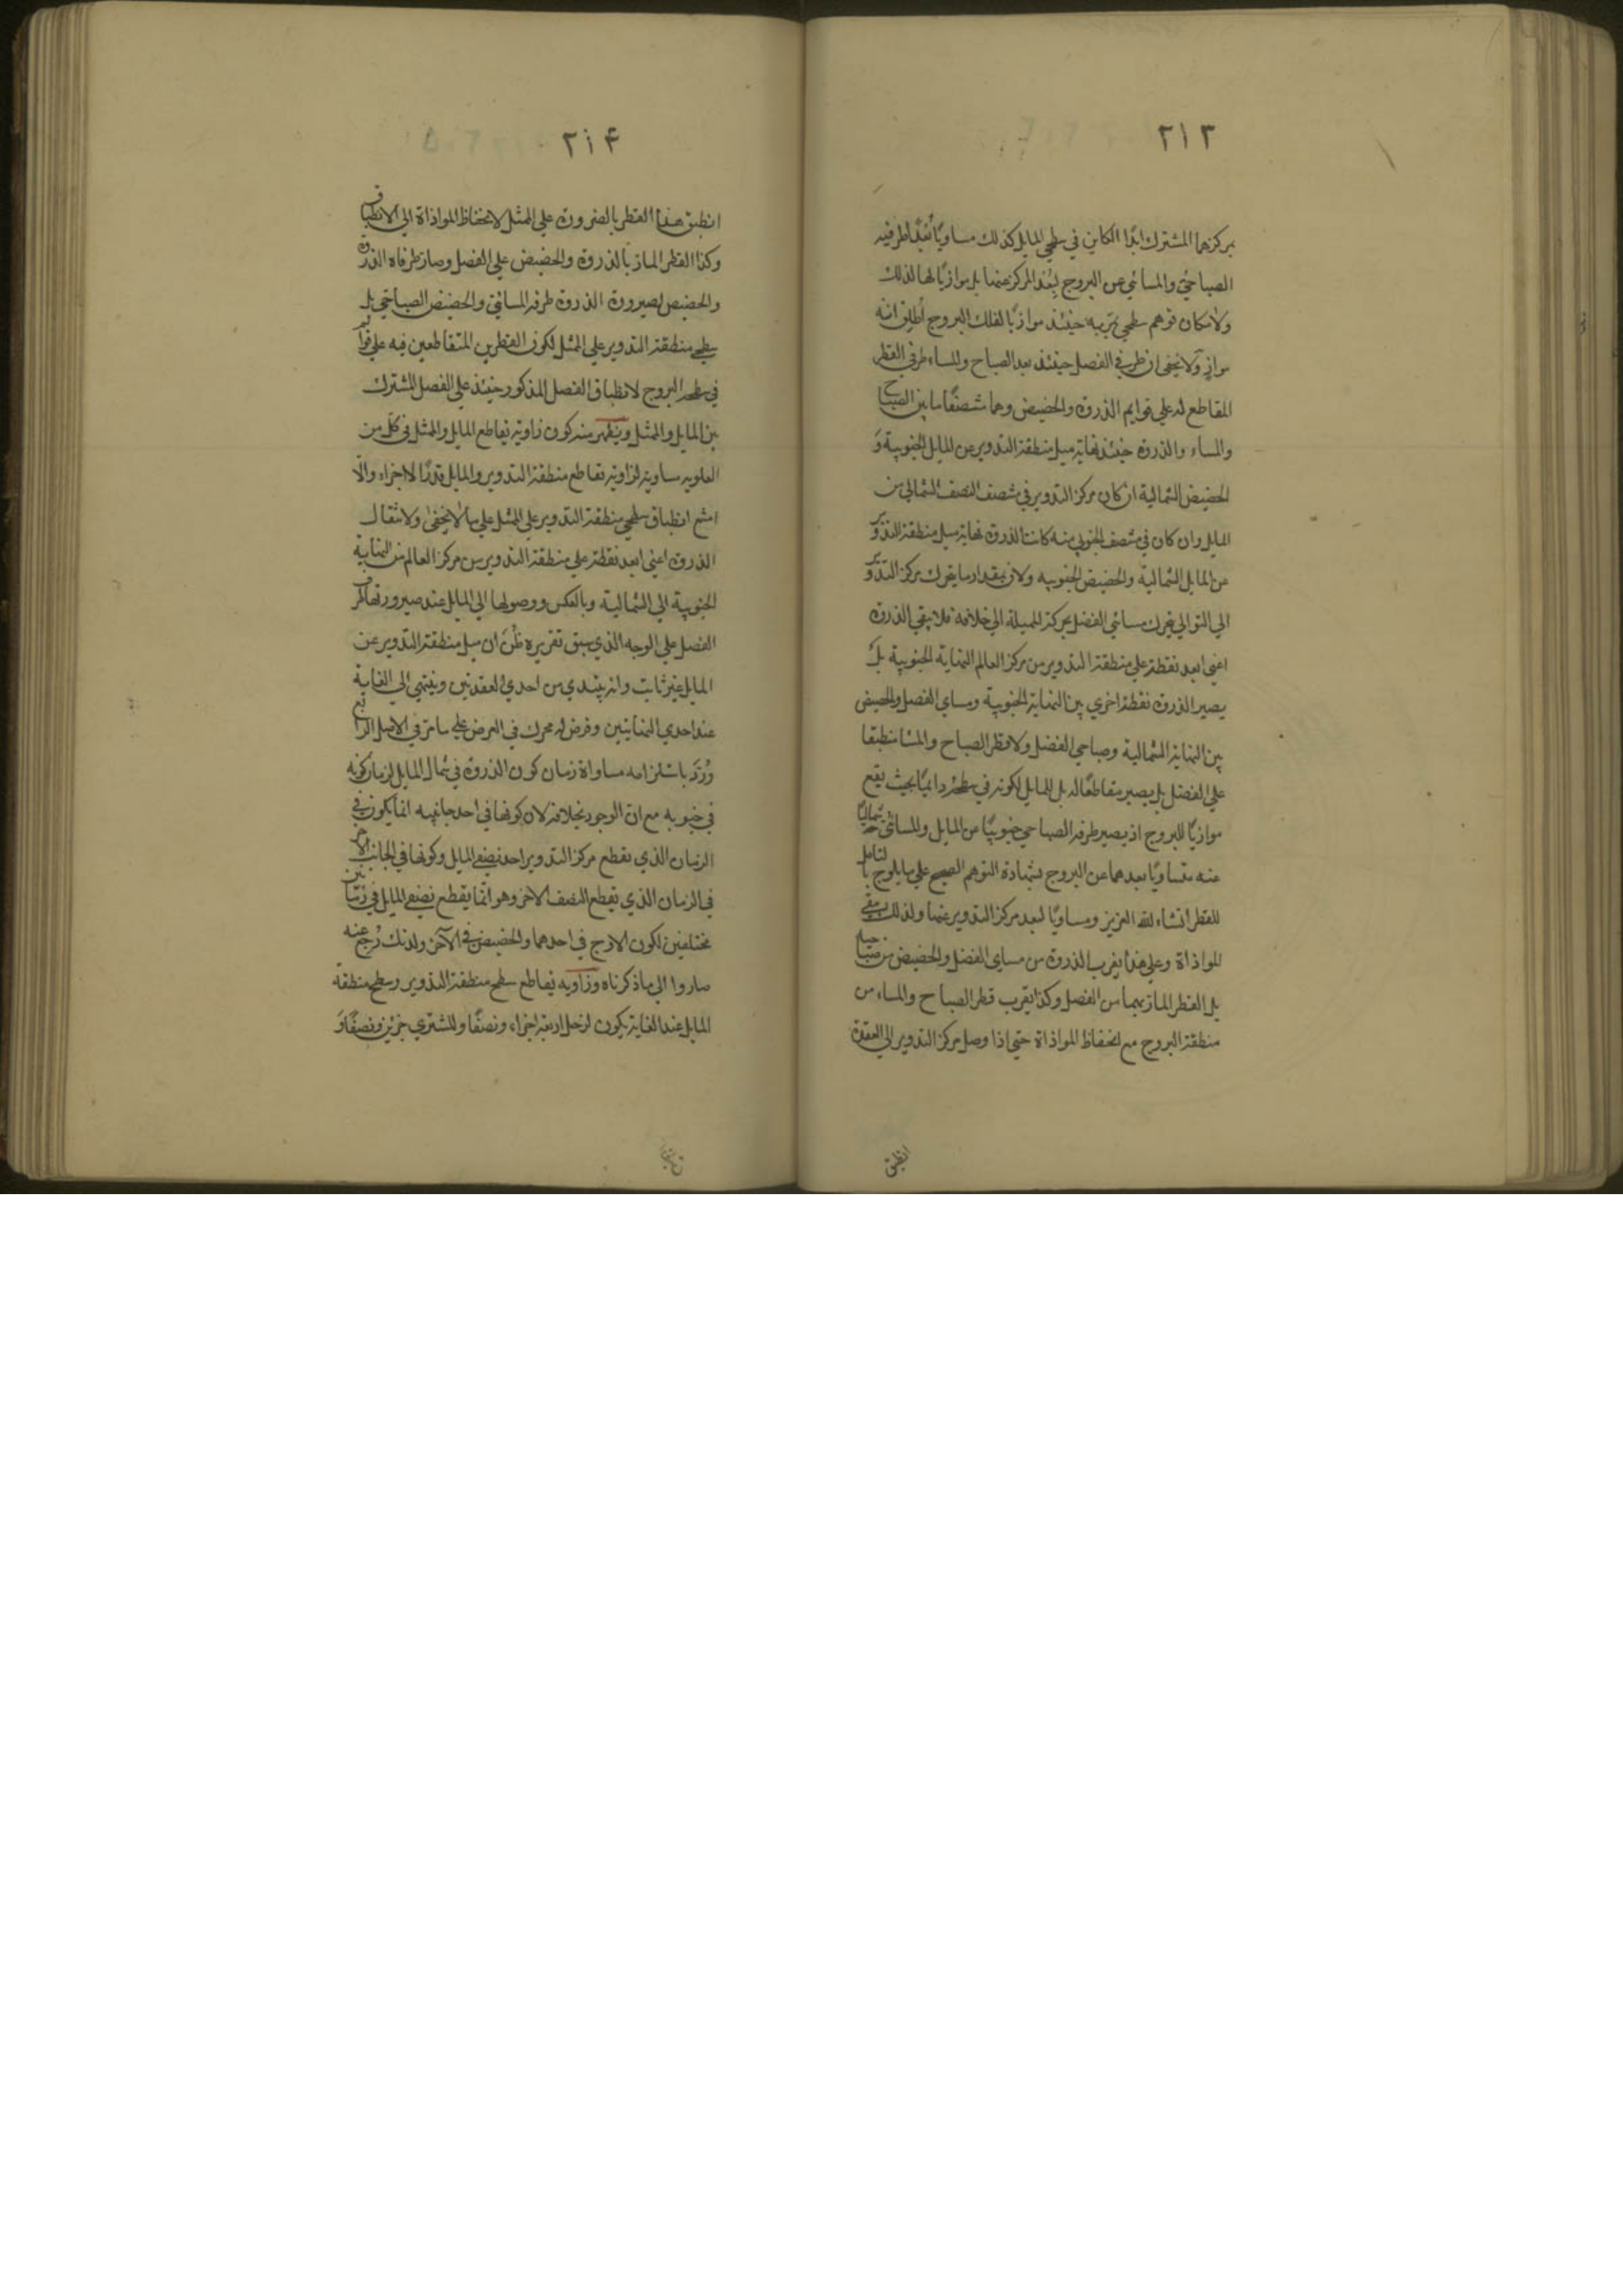 ٢١٣
مركزهما المشترك ابدًا الكاين في سطحي المايل كذلك مساويًا بُعدًا طرفيه
الصباحي والمسائي عن البروج لبُعد المركز عنها بل موازيًا لها لذلك
ولامكان توهم سطحي يمر به حينئذ موازيًا لفلك البروج اُطلق انه
موازٍ ولا يخفى ان طرفي الفصل حينئذ بعد الصباح والمساء طرفي القطر
المقاطع له على قوايم الذروة والحضيض وهما منتصفا ما بين الصباح
والمساء والذروة حينئذ نهاية ميل منطقة التدوير عن المايل الجنوبية و
الحضيض الشمالية ان كان مركز التدوير في منتصف النصف الشمالي من
المايل وان كان في منتصف الجنوبي منه كانت الذروة نهاية ميل منطقة التدوير
عن المايل الشمالية والحضيض الجنوبيه ولان بمقدار ما يتحرك مركز التدوير
الى التوالي يتحرك مسائي الفصل بحركة المميلة الى خلافه فلا يبقى الذروة
اعني ابعد نقطة على منطقة التدوير من مركز العالم النهاية الجنوبية بل
يصير الذروة نقطة اخرى بين النهاية الجنوبية ومسائي الفصل والحضيض
بين النهاية الشمالية وصباحي الفصل ولا قطر الصباح والمسا منطبقا
على الفصل بل يصير مقاطعًا له بل للمايل لكونه في سطحه دايمًا بحيث يقع
موازيًا للبروج اذ يصير طرفه الصباحي جنوبيًا من المايل والمسائي شماليًا
عنه متساويًا بعدهما عن البروج بشهادة التوهم الصحيح على ما يلوح بالتامل
للقطر انشاء الله العزيز ومساويًا لبعد مركز التدوير عنها ولذلك يبقى
الموازاة وعلى هذا يقرب الذروة من مسائي الفصل والحضيض من صباحيه
بل القطر المار بهما من الفصل وكذا يقرب قطر الصباح والمساء من
منطقة البروج مع انحفاظ الموازاة حتى اذا وصل مركز التدوير الى العقدة
انطبق
٢١۴
انطبق هذا القطر بالضرورة على الممثل لانحفاظ الموازاة الى الانطباق
وكذا القطر المار بالذروة والحضيض على الفصل وصار طرفاه الذروة
والحضيض لصيرورة الذروة طرفه المسائي والحضيض الصباحي بل
سطح منطقة التدوير على الممثل لكون القطرين المتقاطعين فيه على قوايم
في سطح البروج لانطباق الفصل المذكور حينئذ على الفصل المشترك
بين المايل والممثل ويظهر منه كون زاوية تقاطع المايل والممثل في كل من
العلويه مساوية لزاوية تقاطع منطقة التدوير والمايل قدرًا لاجزاء والا
امتنع انطباق سطحي منطقة التدوير على الممثل على ما لا يخفى ولانتقال
الذروة اعني ابعد نقطة على منطقة التدوير من مركز العالم من النهاية
الجنوبية الى الشمالية وبالعكس ووصولها الى المايل عند صيرورتها طرف
الفصل على الوجه الذي سبق تقريره ظُنّ ان ميل منطقة التدوير عن
المايل غير ثابت وانه يبتدي من احدى العقدتين وينتهي الى الغاية
عند احدى النهايتين وفرض له محرك في العرض على ما مر في الاصل الرابع
ورُدّ باستلزامه مساواة زمان كون الذروة في شمال المايل لزمان كونه
في جنوبه مع ان الوجود بخلافه لان كونها في احد جانبيه انما يكون في
الزمان الذي يقطع مركز التدوير احد نصفي المايل وكونها في الجانب الاخر
في الزمان الذي يقطع النصف الاخر وهو انما يقطع نصفي المايل في زمانين
مختلفين لكون الاوج في احدهما والحضيض في الآخر ولذلك رُجع عنه
صاروا الى ما ذكرناه وزاويه تقاطع سطح منطقة التدوير وسطح منطقة
المايل عند الغاية يكون لزحل اربعة اجزاء ونصفًا وللمشتري جزئين ونصفًا و